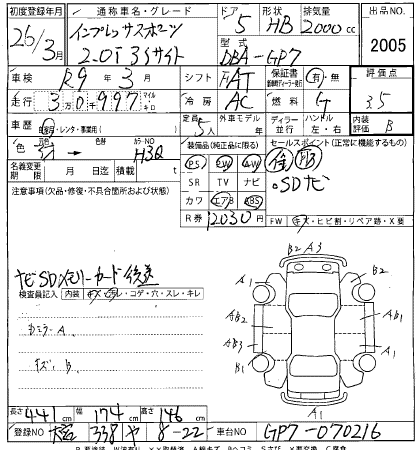 初度登録年月 通称車名・グレード ドア 形状 排気量 出品NO.
26/3月 インプレッサスポーツ 5 HB 2000cc
2.0i アイサイト 型式 DBA-GP7 2005
車検 R9年3月 シフト FAT 保証書 有・無 評価点
走行 30997 マイル キロ 冷房 AC 燃料 G 3.5
車歴 自家用・レンタ・事業用( ) 定員 5人 外車モデル 年 ディーラー 並行 ハンドル 左・右 内装評価 B
色 色替 カラーNO H3Q 装備品(純正品に限る) セールスポイント(正常に機能するもの)
名義変更期限 月 日迄 積載量 t PS PW AW
注意事項(欠品・修復・不具合箇所および状態) SR TV ナビ ・SDナビ
カワ エアB ABS
R券 12030円 FW キズ・ヒビ割・リペア跡・X要
ナビSDメモリーカード後送
検査員記入 内装 キズ・ヨゴレ・コゲ・穴・スレ・キレ
ルミラーA
キズ、B
B2 A3
A1 B2
AB2 A1
AB3 B1
A1 A1
A1
長さ 441cm 幅 174cm 高さ 146cm
登録NO 338 や 8-22 車台NO GP7-070216